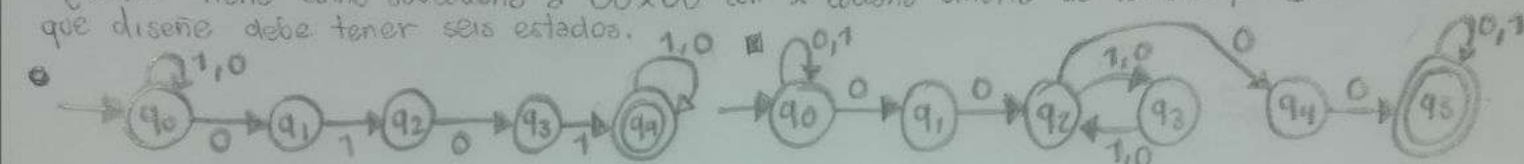 que diseñe debe tener seis estados.
1,0 1,0 0,1 0 0,1
q0 0 q1 1 q2 0 q3 1 q4 q0 0 q1 0 q2 1,0 q3 1,0 q4 0 q5